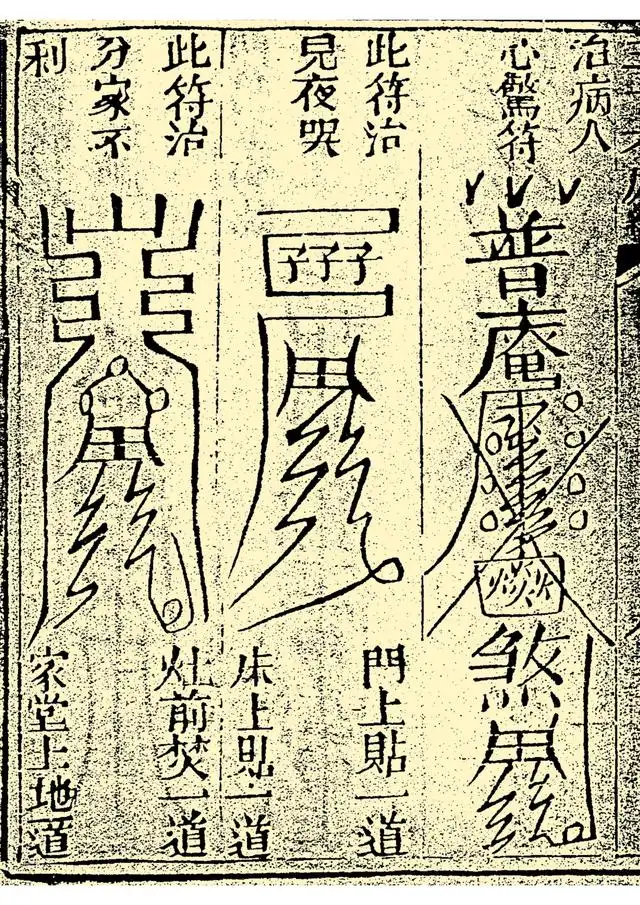 治病人
心驚符
普庵
煞
此符治
見夜哭
門上貼一道
床上貼一道
此符治
分家不
利
灶前焚一道
家堂土地一道